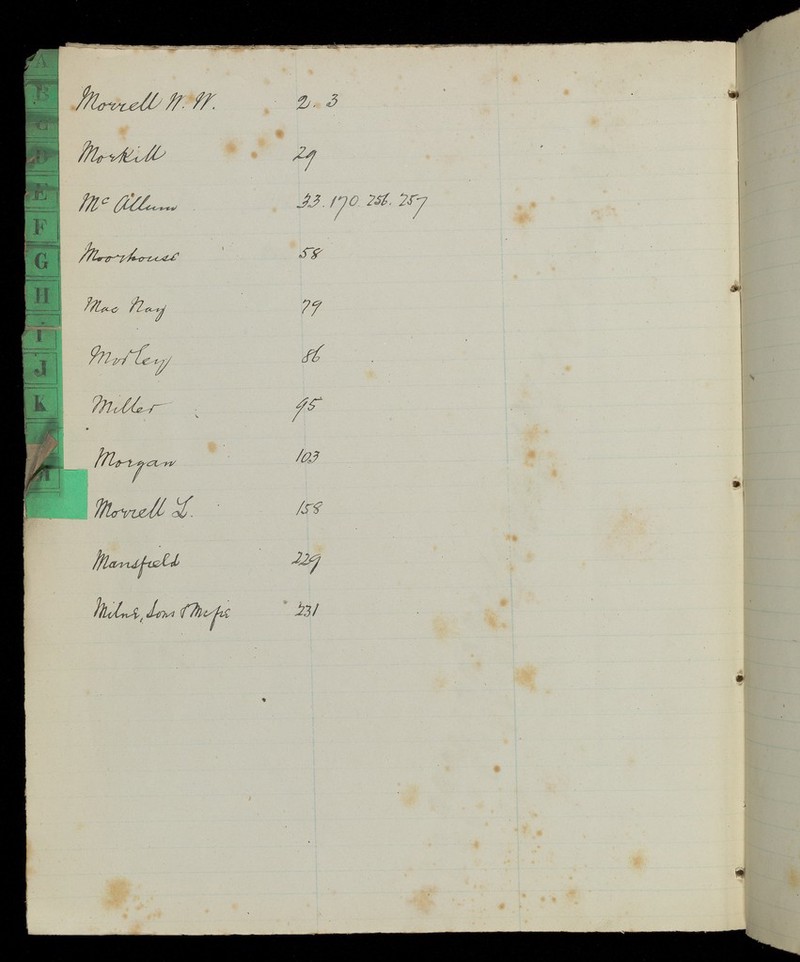 A
B
C
D
E
F
G
H
I
J
K
M
Morrell W. W. 2. 3
Morkill 29
Mc Allum 33. 170. 256. 257
Moorhouse 58
Mac Nay 79
Motley 86
Miller 95
Morgan 103
Morrell L. 158
Mansfield 229
Milne, Sons & McFie 231